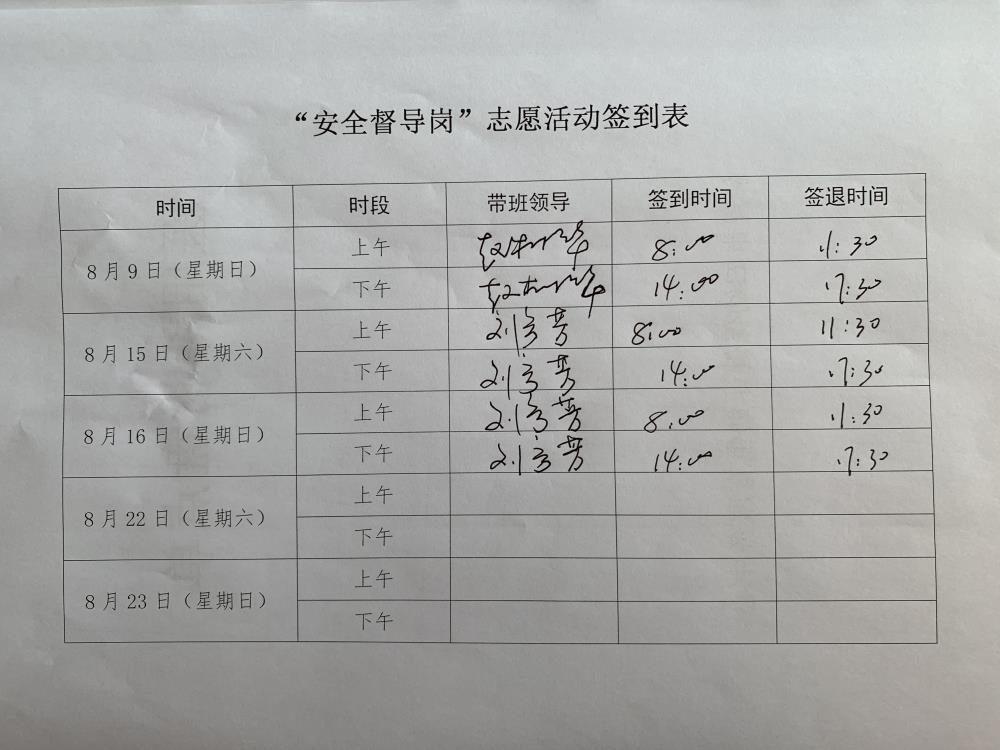 “安全督导岗”志愿活动签到表
时间 时段 带班领导 签到时间 签退时间
8月9日（星期日） 上午 8:00 11:30
下午 14:00 17:30
8月15日（星期六） 上午 刘 芳 8:00 11:30
下午 刘 芳 14:00 17:30
8月16日（星期日） 上午 刘 芳 8:00 11:30
下午 刘 芳 14:00 17:30
8月22日（星期六） 上午
下午
8月23日（星期日） 上午
下午